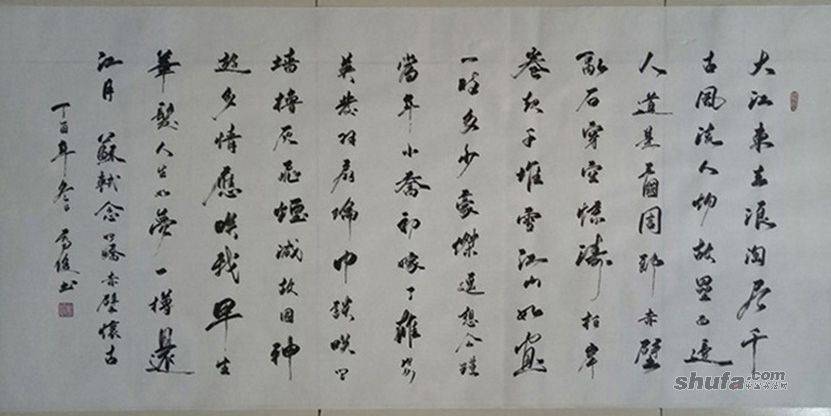 大江東去浪淘尽千
古風流人物故壘西邊
人道是三國周郎赤壁
乱石穿空惊濤拍岸
卷起千堆雪江山如畫
一時多少豪傑遥想公瑾
當年小喬初嫁了雄姿
英發羽扇綸巾談咲間
墙櫓灰飛煙滅故国神
遊多情應咲我早生
華髮人生如夢一樽還
江月 蘇軾念奴嬌赤壁懷古
丁酉年冬 俊书
shufa.com